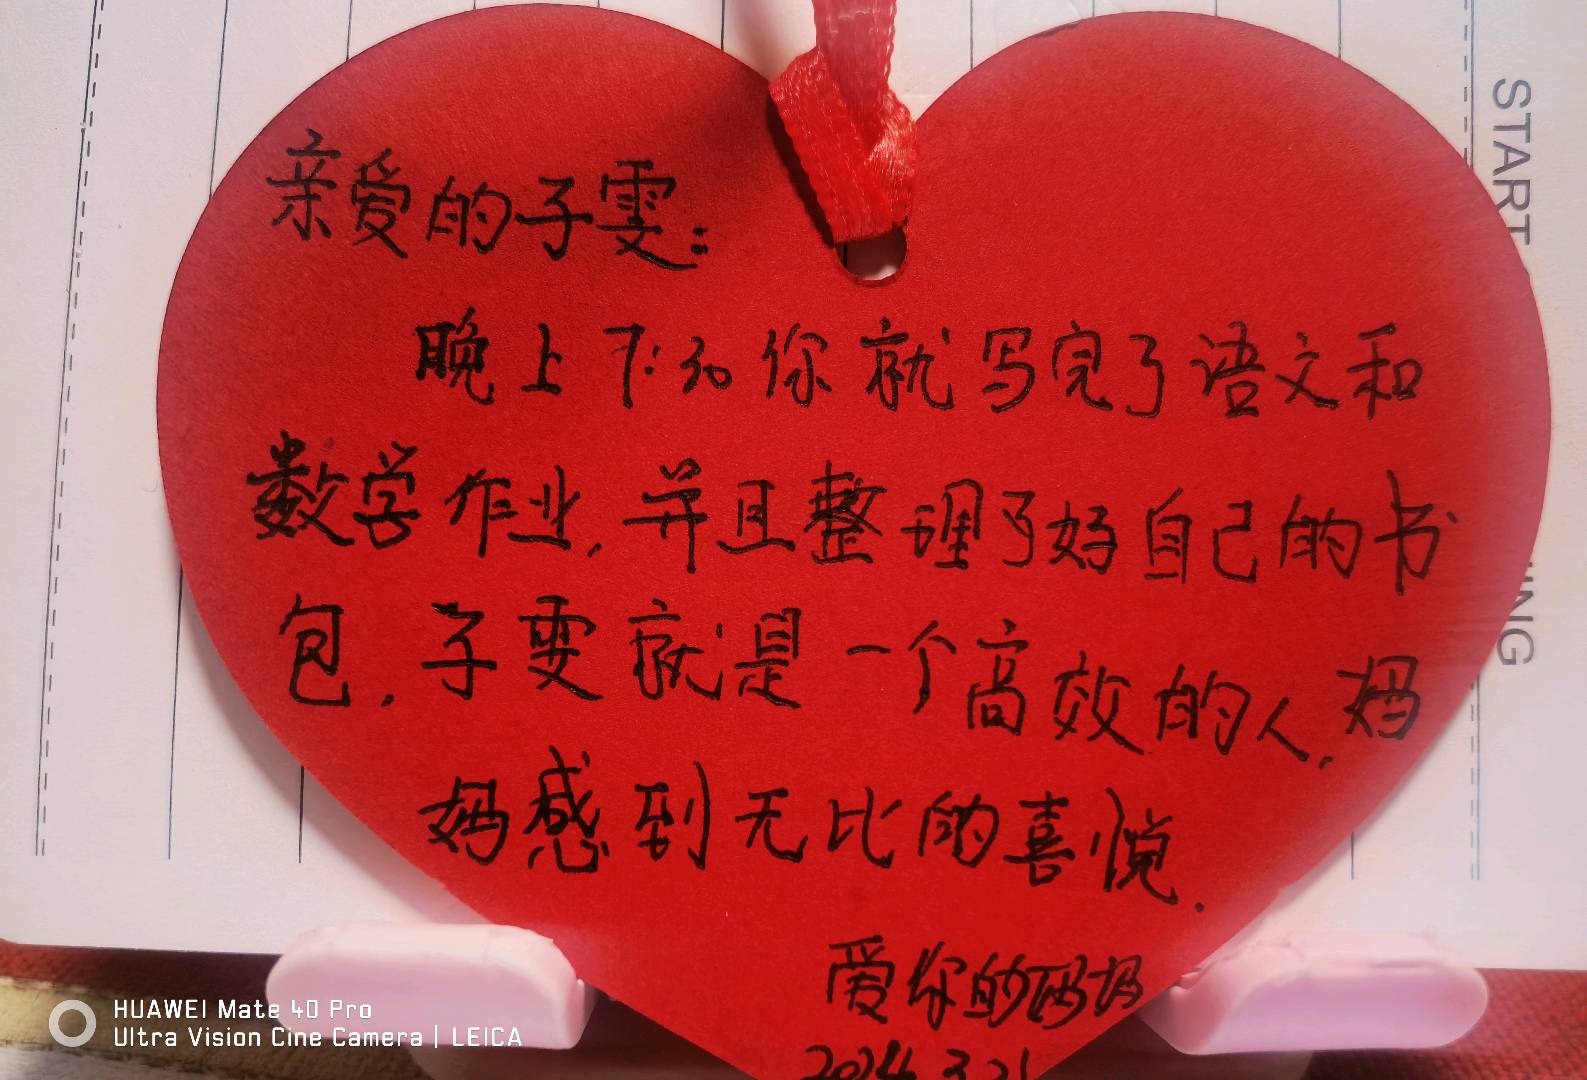 亲爱的子雯:
晚上下你就写完了语文和
数学作业,并且整理了好自己的书
包.子雯就是一个高效的人.妈
妈感到无比的喜悦.
爱你的妈妈
2024.3.21
START
ING
HUAWEI Mate 40 Pro
Ultra Vision Cine Camera | LEICA